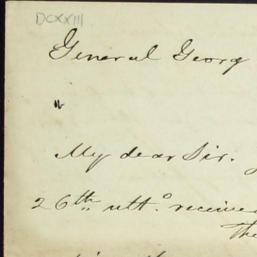 DCXXIII
General Georg
"
My dear Sir.
26th ulto. receive
The